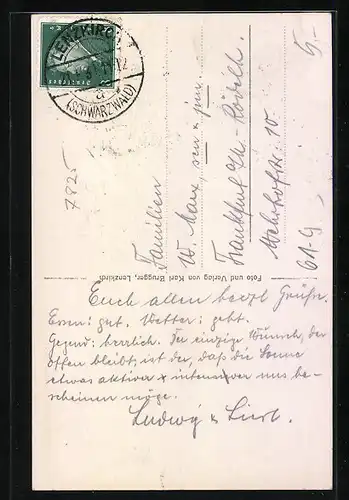 LENZKIRCH
(SCHWARZWALD)
a
7825
5.-
Familien
W. Marx, sen & jun.
Frankfurt
61-9
Foto und Verlag von Karl Brugger, Lenzkirch
Euch allen herzl Grüße.
Essen: gut. Wetter: geht.
Gegend: herrlich. Der einzige Wunsch, der
offen bleibt, ist der, daß die Sonne
etwas aktiver & intensiver uns be-
scheinen möge.
Ludwig &